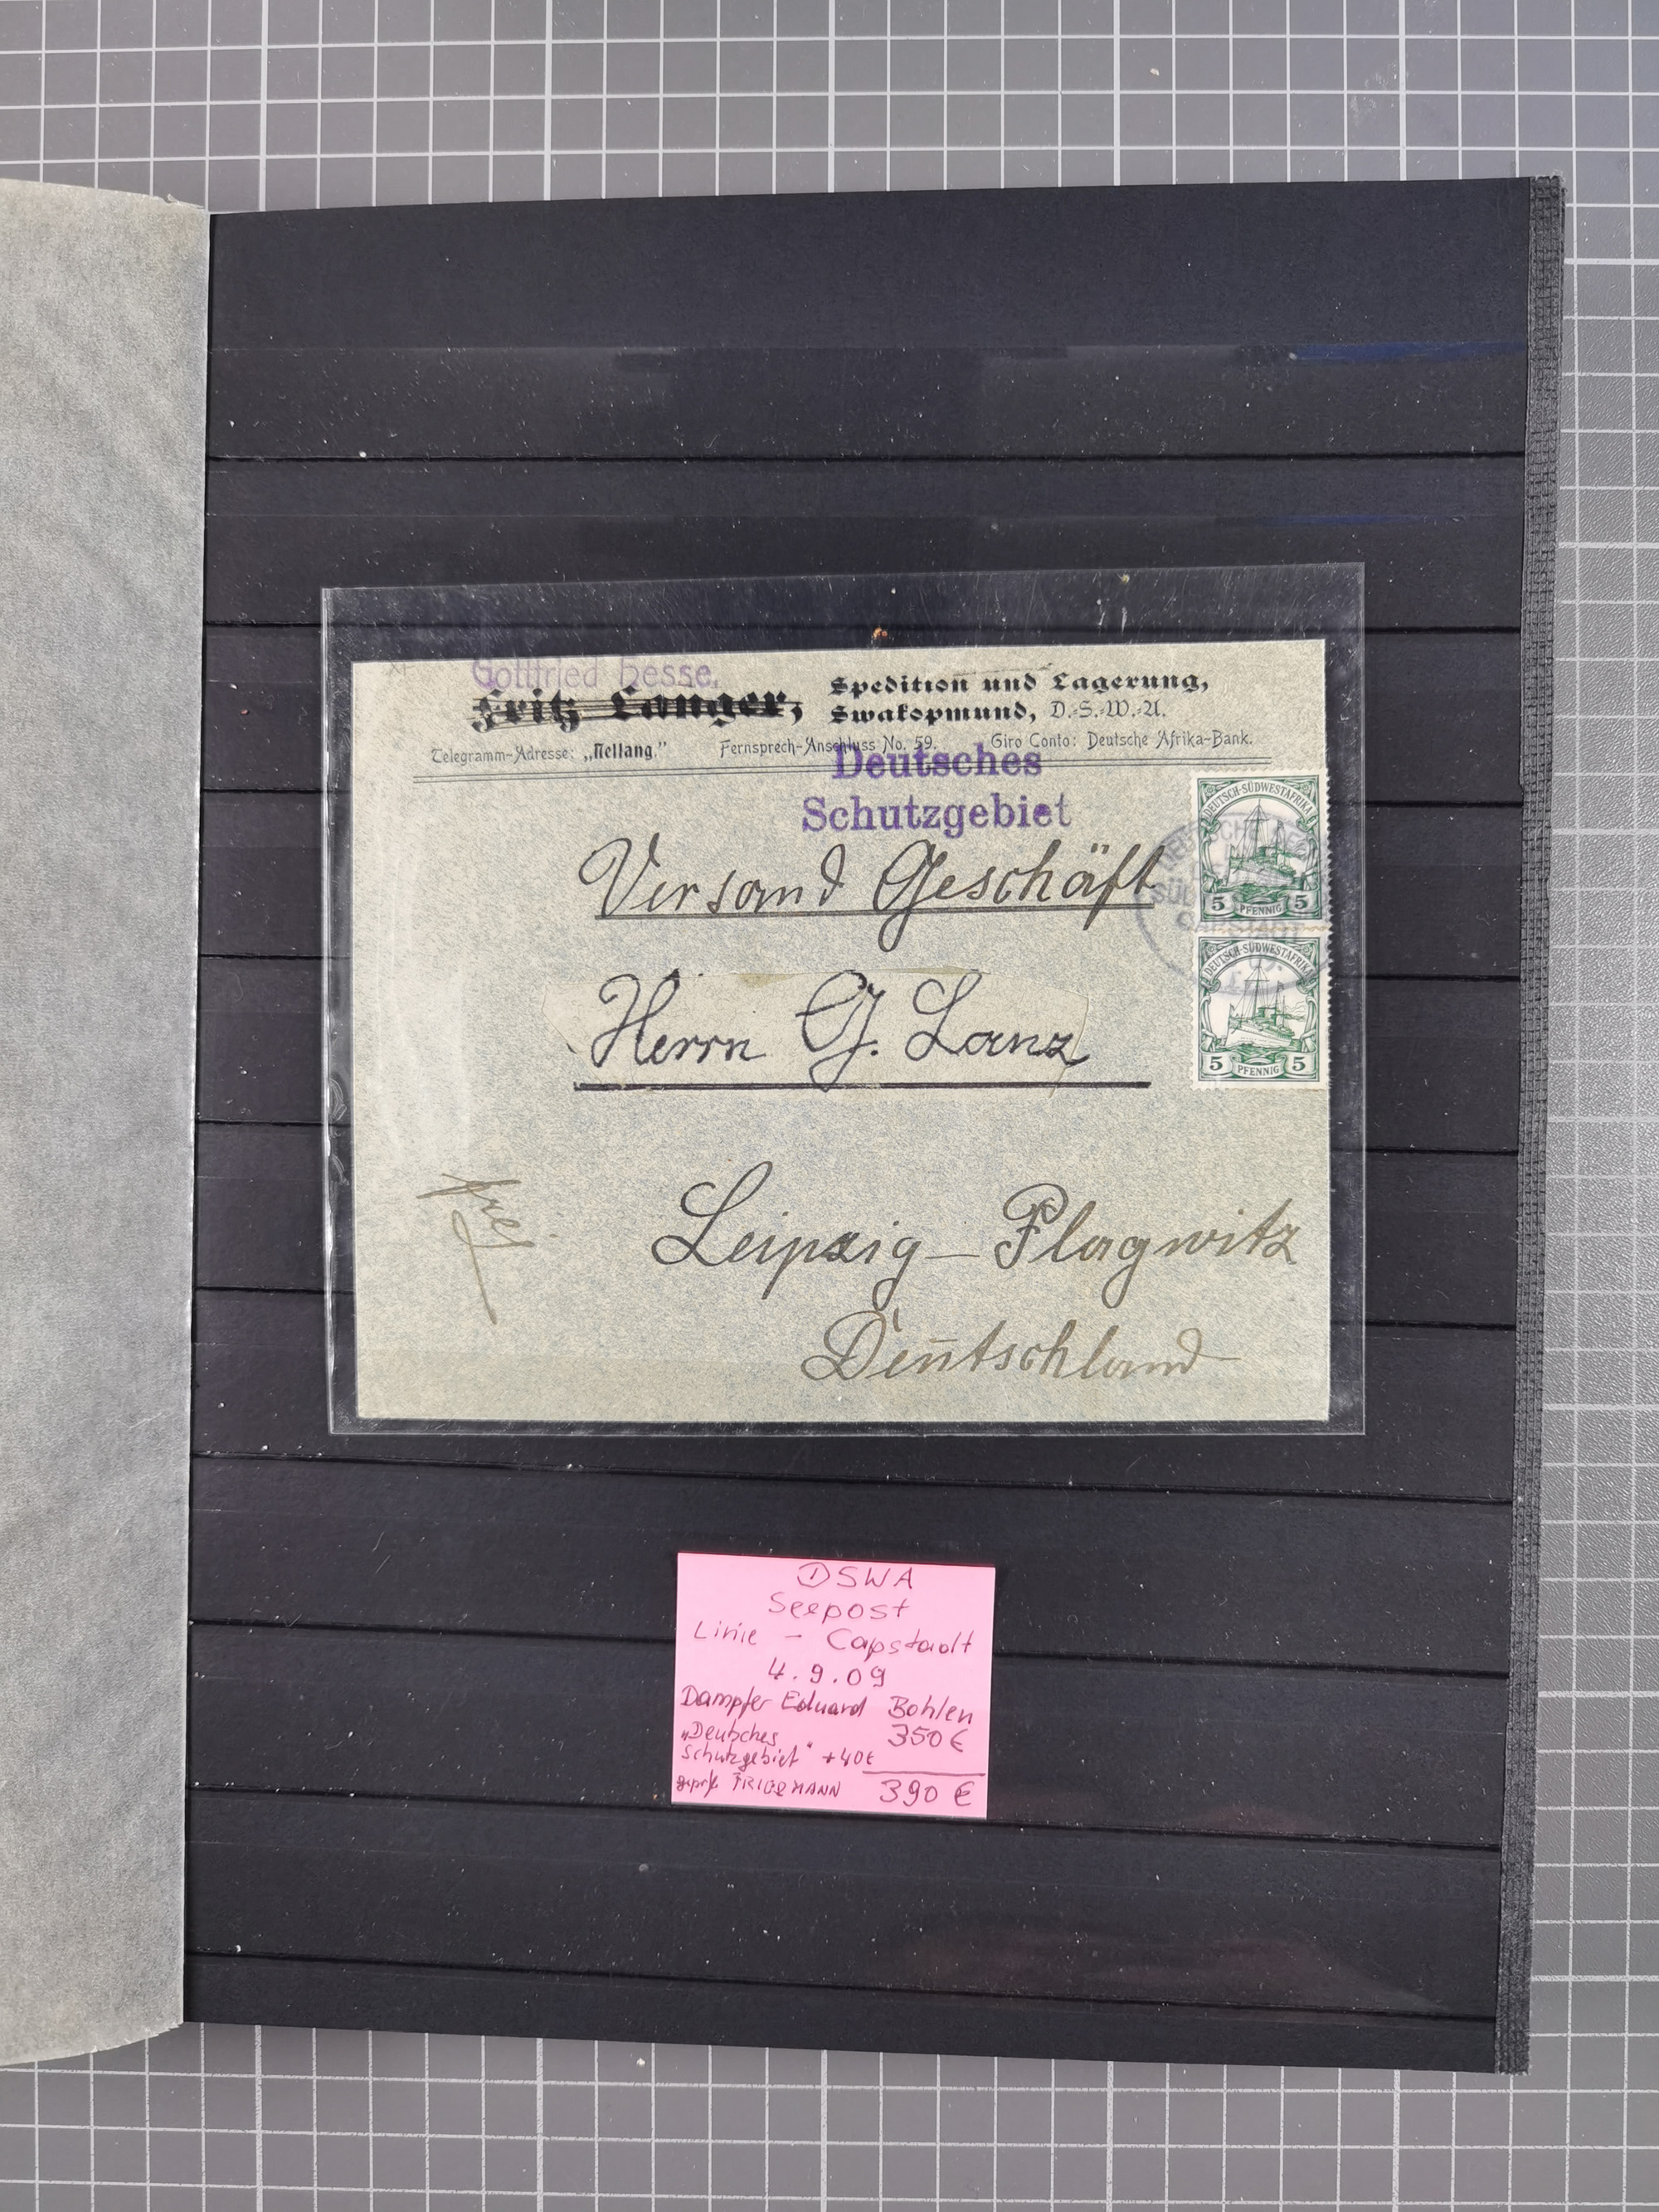 Gottfried Hesse,
Fritz Langer,
Spedition und Lagerung,
Swakopmund, D.-S.-W.-A.
Telegramm-Adresse: „Nellang." Fernsprech-Anschluss No. 59. Giro Conto: Deutsche Afrika-Bank.
Deutsches
Schutzgebiet
DEUTSCH-SÜDWESTAFRIKA
5 PFENNIG 5
DEUTSCH-SÜDWESTAFRIKA
5 PFENNIG 5
Versand Geschäft
Herrn G. Lanz
Leipzig – Plagwitz
Deutschland
frei
DSWA
Seepost
Linie – Capstadt
4.9.09
Dampfer Eduard Bohlen
„Deutsches 350 €
Schutzgebiet" +40€
FRIEDEMANN 390 €